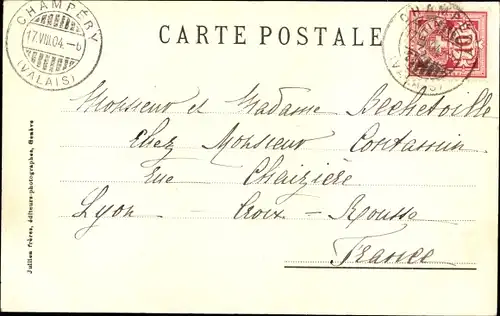 CHAMPÉRY
17.VIII.04.-6
(VALAIS)
CARTE POSTALE
CHAMPÉRY
(VALAIS)
10
Monsieur et Madame Bechetoille
Chez Monsieur Contamin
Rue Chaizière
Lyon - Croix - Rousse
France
Jullien frères, éditeurs-photographes, Genève